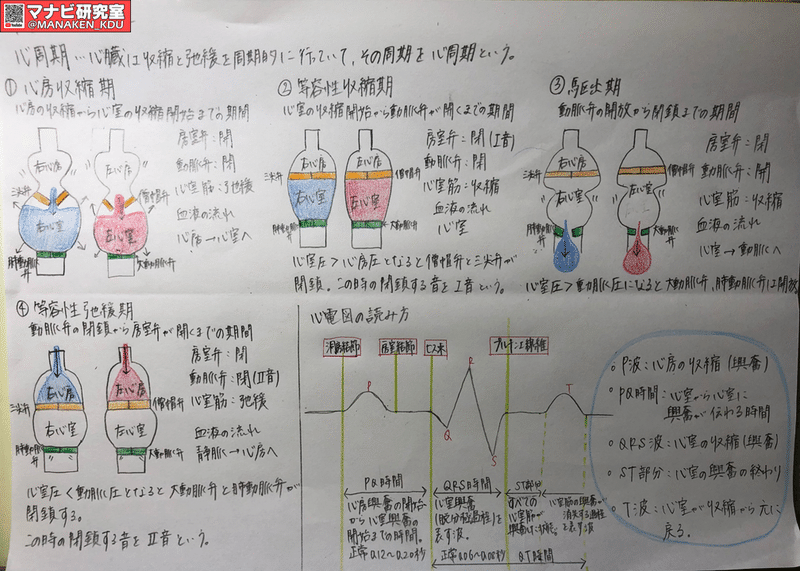 マナビ研究室
@MANAKEN_KDU
心周期…心臓は収縮と弛緩を周期的に行っていて、その周期を心周期という。
① 心房収縮期
心房の収縮から心室の収縮開始までの期間
房室弁：開
動脈弁：閉
心室筋：弛緩
血液の流れ
心房→心室へ
右心房
左心房
三尖弁
僧帽弁
右心室
左心室
肺動脈弁
大動脈弁
② 等容性収縮期
心室の収縮開始から動脈弁が開くまでの期間
房室弁：閉(Ⅰ音)
動脈弁：閉
心室筋：収縮
血液の流れ
心室
右心房
左心房
三尖弁
僧帽弁
右心室
左心室
肺動脈弁
大動脈弁
心室圧＞心房圧となると僧帽弁と三尖弁が
閉鎖。この時の閉鎖する音をⅠ音という。
③ 駆出期
動脈弁の開放から閉鎖までの期間
房室弁：閉
動脈弁：開
心室筋：収縮
血液の流れ
心室→動脈へ
右心房
左心房
三尖弁
僧帽弁
右心室
左心室
肺動脈弁
大動脈弁
心室圧＞動脈圧になると大動脈弁、肺動脈弁は開放
④ 等容性弛緩期
動脈弁の閉鎖から房室弁が開くまでの期間
房室弁：閉
動脈弁：閉(Ⅱ音)
心室筋：弛緩
血液の流れ
静脈→心房へ
右心房
左心房
三尖弁
僧帽弁
右心室
左心室
肺動脈弁
大動脈弁
心室圧＜動脈圧となると大動脈弁と肺動脈弁が
閉鎖する。
この時の閉鎖する音をⅡ音という。
心電図の読み方
洞房結節
房室結節
ヒス束
プルキンエ線維
P
Q
R
S
T
PQ時間
心房興奮の開始
から心室興奮の
開始までの時間。
正常0.12〜0.20秒
QRS時間
心室興奮
(脱分極過程)を
表す波。
正常0.06〜0.08秒
ST部分
すべての
心室筋が
心室筋の興奮が
消失する過程
を表す波
QT時間
○ P波：心房の収縮(興奮)
○ PQ時間：心室から心室に
興奮が伝わる時間
○ QRS波：心室の収縮(興奮)
○ ST部分：心室の興奮の終わり
○ T波：心室が収縮から元に
戻る。